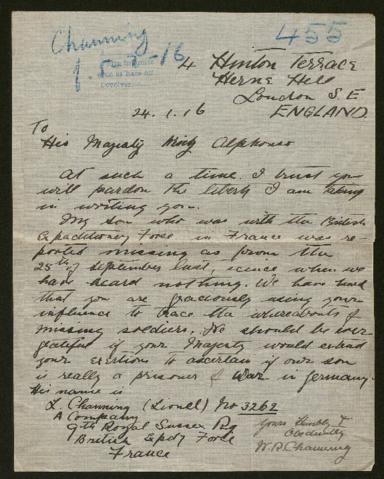 Channing
455
1.5.1-16
4 Hinton Terrace
Herne Hill
London S.E
ENGLAND
24.1.16
To
His Majesty King Alphonso
At such a time I trust you
will pardon the liberty I am taking
in writing you.
My son who was with the British
Expeditionary Force in France was re-
ported missing as from the
25th of September last, since when we
have heard nothing. We have heard
that you are graciously using your
influence to trace the whereabouts of
missing soldiers. We should be ever
grateful if your Majesty would extend
your exertions to ascertain if our son
is really a prisoner of War in Germany.
His name is
L. Channing (Lionel) No 3262
A Company
9th Royal Sussex Rg
British Expdy Force
France
Yours Humbly &
Obediently
W.P. Channing